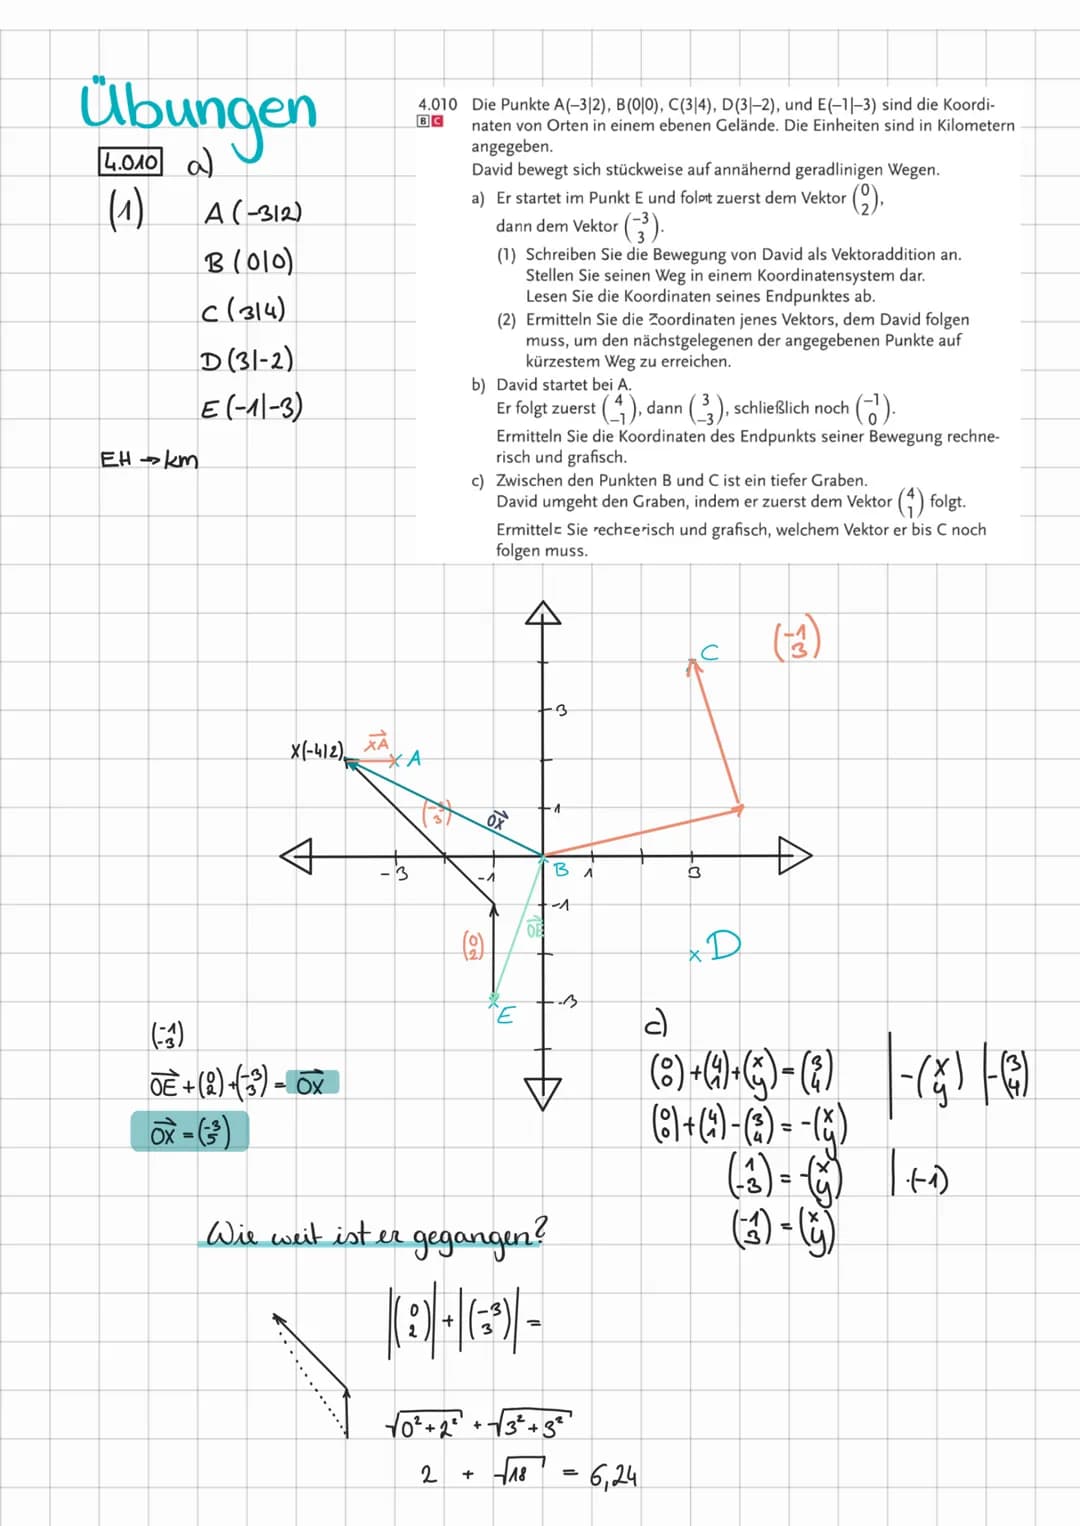 Übungen
4.010 a)
(1) A(-3|2)
B(0|0)
C(3|4)
D(3|-2)
E(-1|-3)
EH → km
4.010 Die Punkte A(–3|2), B(0|0), C(3|4), D(3|–2), und E(–1|–3) sind die Koordi-
B C naten von Orten in einem ebenen Gelände. Die Einheiten sind in Kilometern
angegeben.
David bewegt sich stückweise auf annähernd geradlinigen Wegen.
a) Er startet im Punkt E und folgt zuerst dem Vektor (0 2),
dann dem Vektor (–3 3).
(1) Schreiben Sie die Bewegung von David als Vektoraddition an.
Stellen Sie seinen Weg in einem Koordinatensystem dar.
Lesen Sie die Koordinaten seines Endpunktes ab.
(2) Ermitteln Sie die Koordinaten jenes Vektors, dem David folgen
muss, um den nächstgelegenen der angegebenen Punkte auf
kürzestem Weg zu erreichen.
b) David startet bei A.
Er folgt zuerst (4 –1), dann (3 –3), schließlich noch (–1 0).
Ermitteln Sie die Koordinaten des Endpunkts seiner Bewegung rechne-
risch und grafisch.
c) Zwischen den Punkten B und C ist ein tiefer Graben.
David umgeht den Graben, indem er zuerst dem Vektor (4 1) folgt.
Ermitteln Sie rechnerisch und grafisch, welchem Vektor er bis C noch
folgen muss.
C (-1 3)
3
X(-4|2) XA A
(-3 3) OX 1
-3 -1 B 1 3
-1
(0 2) OE D
E -3
(-1 -3)
OE + (0 2) + (-3 3) = OX
OX = (-3 5)
c)
(0 0) + (4 1) + (x y) = (3 4) | -(x y) | -(3 4)
(0 0) + (4 1) - (3 4) = -(x y)
(1 -3) = -(x y) | ·(-1)
(-1 3) = (x y)
Wie weit ist er gegangen?
|(0 2)| + |(-3 3)| =
√0²+2² + √3²+3²
2 + √18 = 6,24